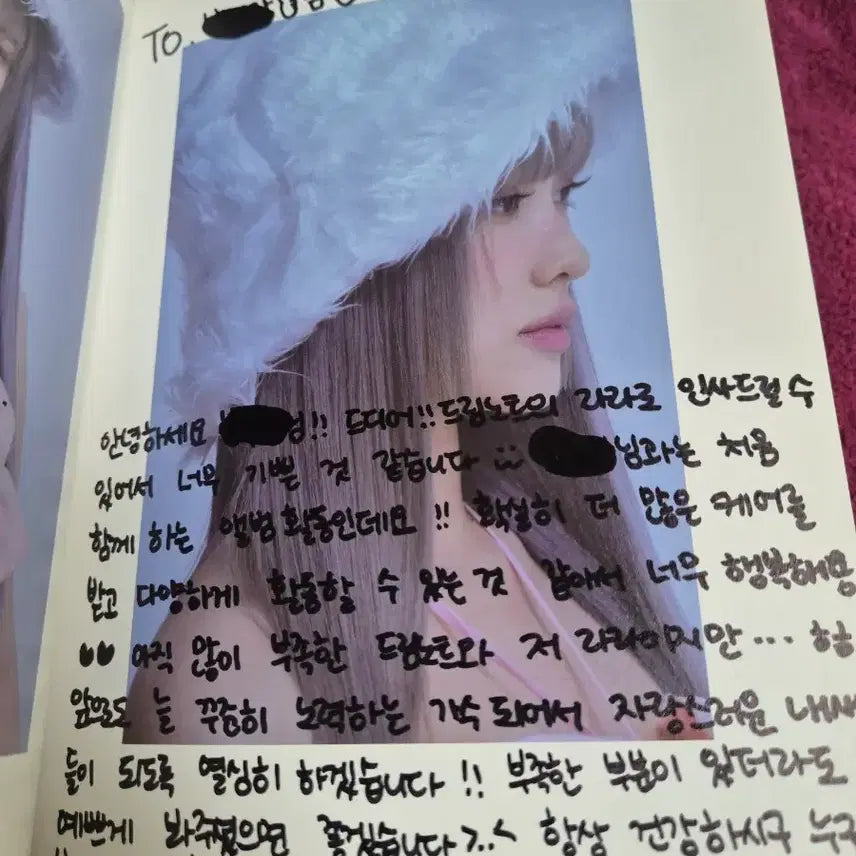 To.
안녕하세요 님!! 드디어!! 드림노트의 라라로 인사드릴 수
있어서 너무 기쁜 것 같습니다 :: 님과는 처음
함께 하는 앨범 활동인데요 !! 확실히 더 많은 케어를
받고 다양하게 활동할 수 있는 것 같아서 너무 행복해요
아직 많이 부족한 드림노트와 저 라라이지만... 하
앞으로도 늘 꾸준히 노력하는 가수 되어서 자랑스러운
들이 되도록 열심히 하겠습니다 !! 부족한 부분이 있더라도
예쁘게 봐주셨으면 좋겠습니다 >..< 항상 건강하시구